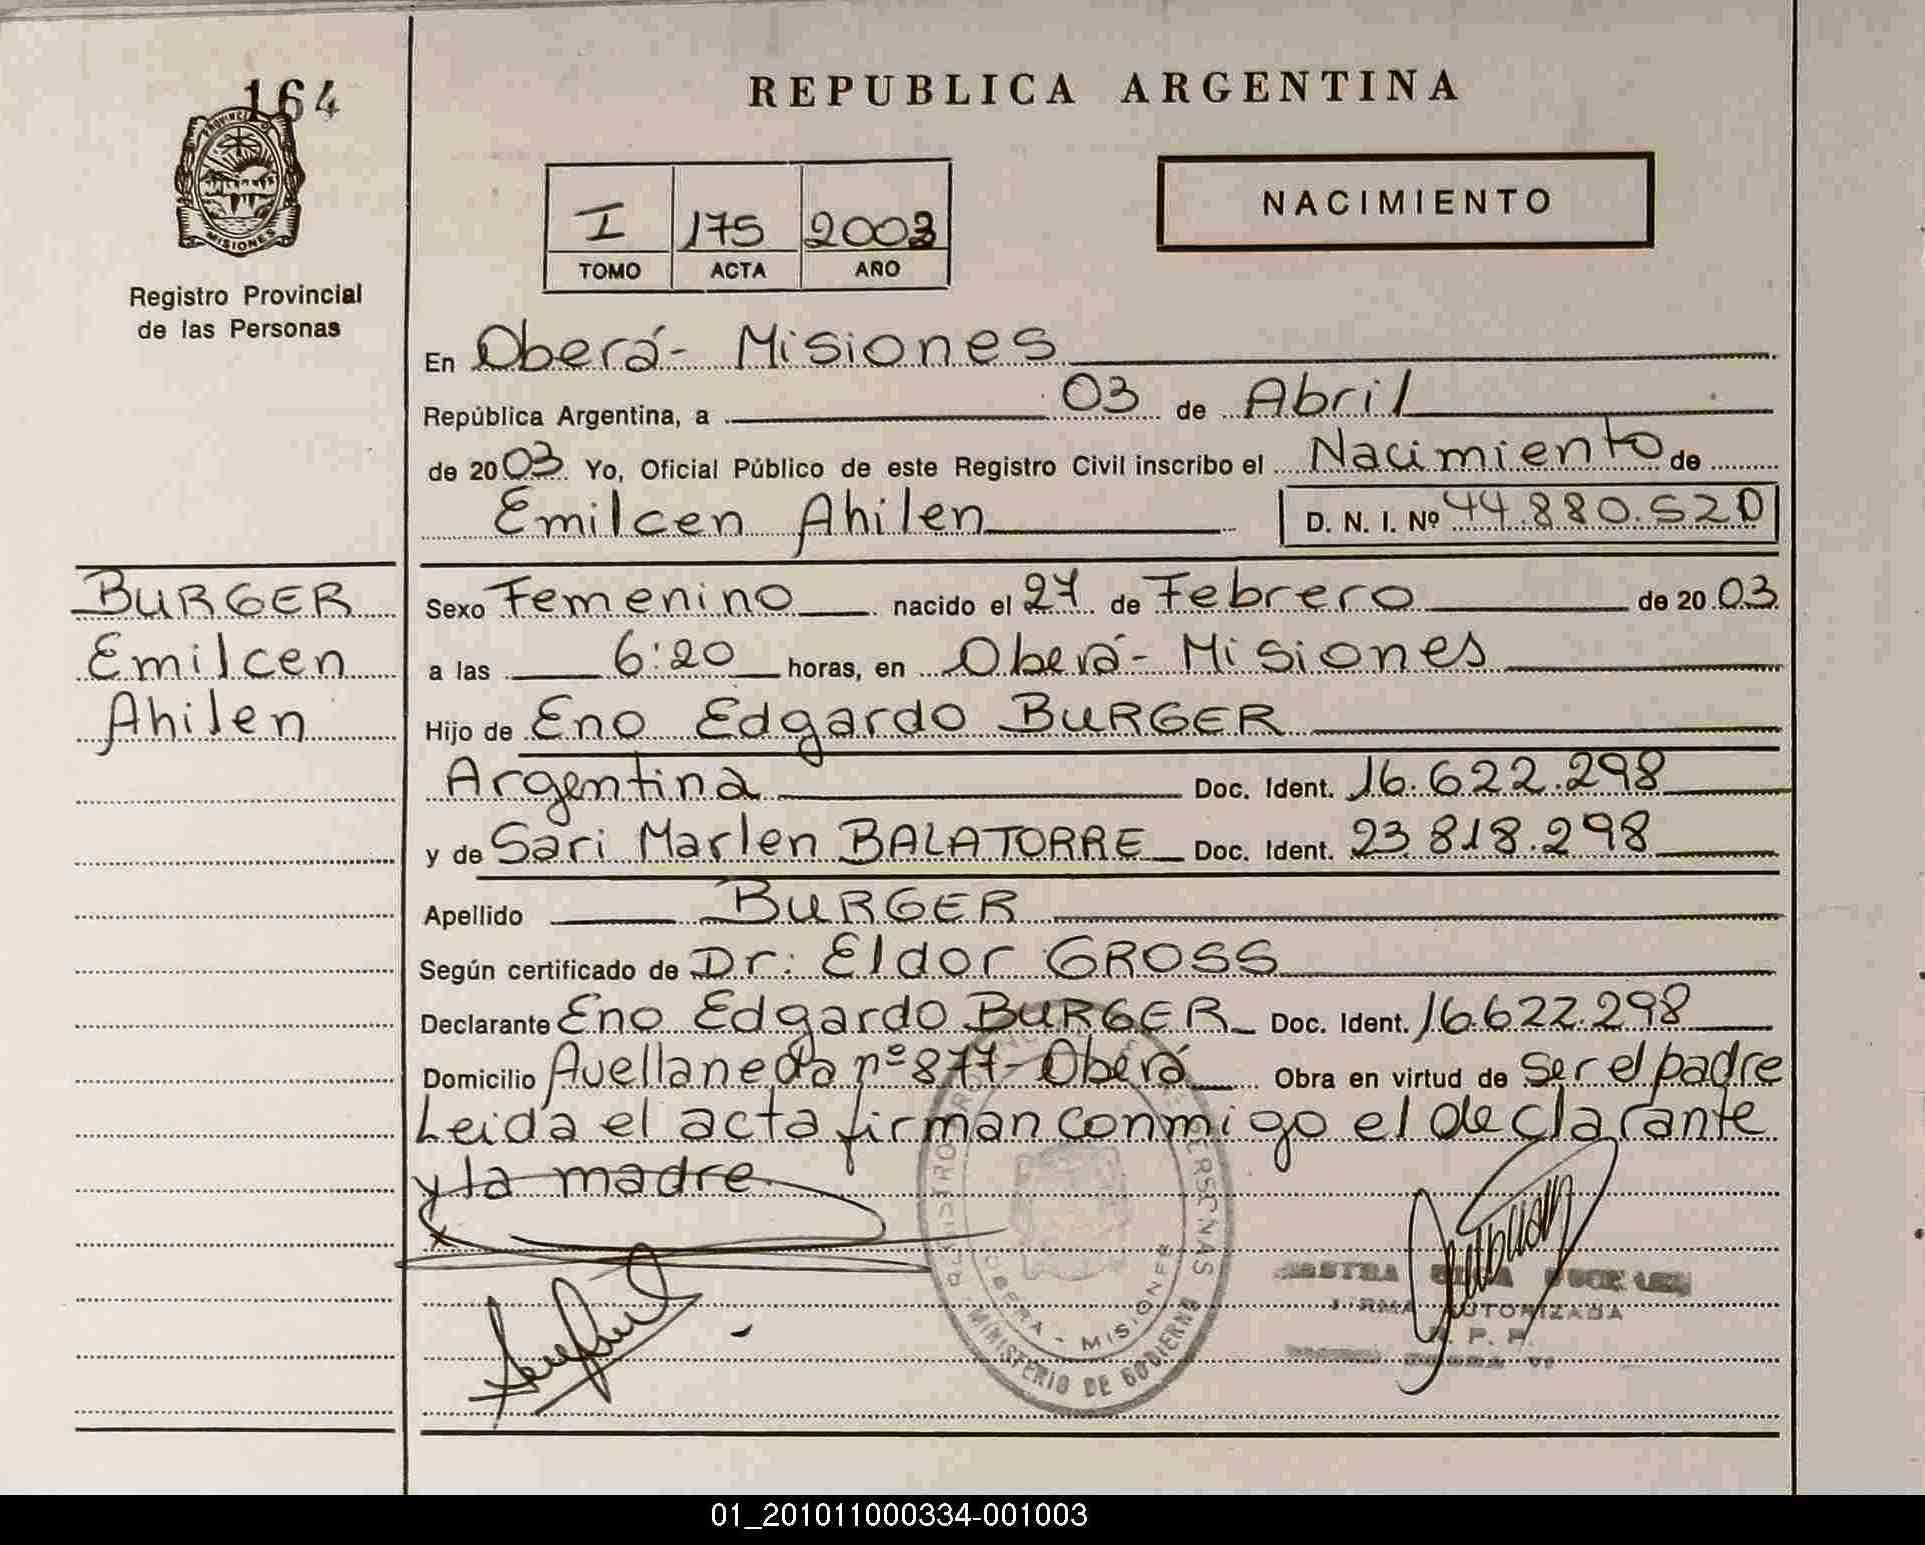 164
PROVINCIA
MISIONES
Registro Provincial
de las Personas
REPUBLICA ARGENTINA
I 175 2003
TOMO ACTA AÑO
NACIMIENTO
En Oberá- Misiones
República Argentina, a 03 de Abril
de 2003 Yo, Oficial Público de este Registro Civil inscribo el Nacimiento de
Emilcen Ahilen D. N. I. Nº 44.880.520
BURGER
Emilcen
Ahilen
Sexo Femenino nacido el 27 de Febrero de 2003
a las 6:20 horas, en Oberá- Misiones
Hijo de Eno Edgardo BURGER
Argentina Doc. Ident. 16.622.298
y de Sari Marlen BALATORRE Doc. Ident. 23.818.298
Apellido BURGER
Según certificado de Dr: Eldor GROSS
Declarante Eno Edgardo BURGER Doc. Ident. 16.622.298
Domicilio Avellaneda nº 877- Oberá Obra en virtud de Ser el padre
Leida el acta firman conmigo el declarante
y la madre.
PERSONAS
MINISTERIO DE GOBIERNO
OBERA - MISIONES
FIRMA AUTORIZADA
01_201011000334-001003